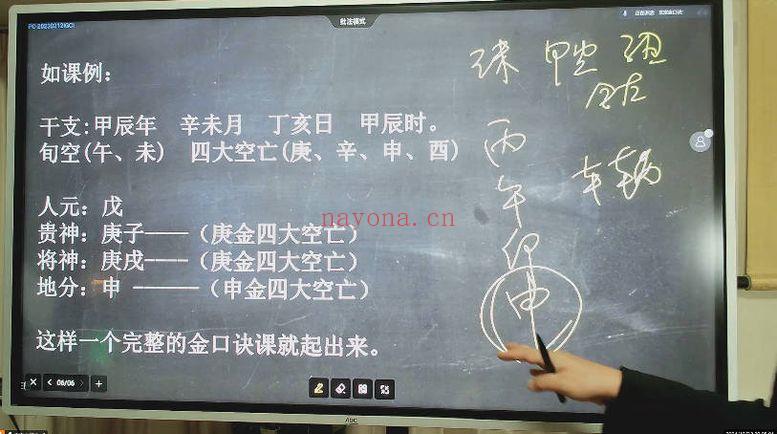 批注模式
如课例：
干支:甲辰年 辛未月 丁亥日 甲辰时。
旬空(午、未) 四大空亡(庚、辛、申、酉)
人元：戊
贵神：庚子——（庚金四大空亡）
将神：庚戌——（庚金四大空亡）
地分：申 ——（申金四大空亡）
这样一个完整的金口诀课就起出来。
丙
午
申
车辆
nayona.cn
06/06